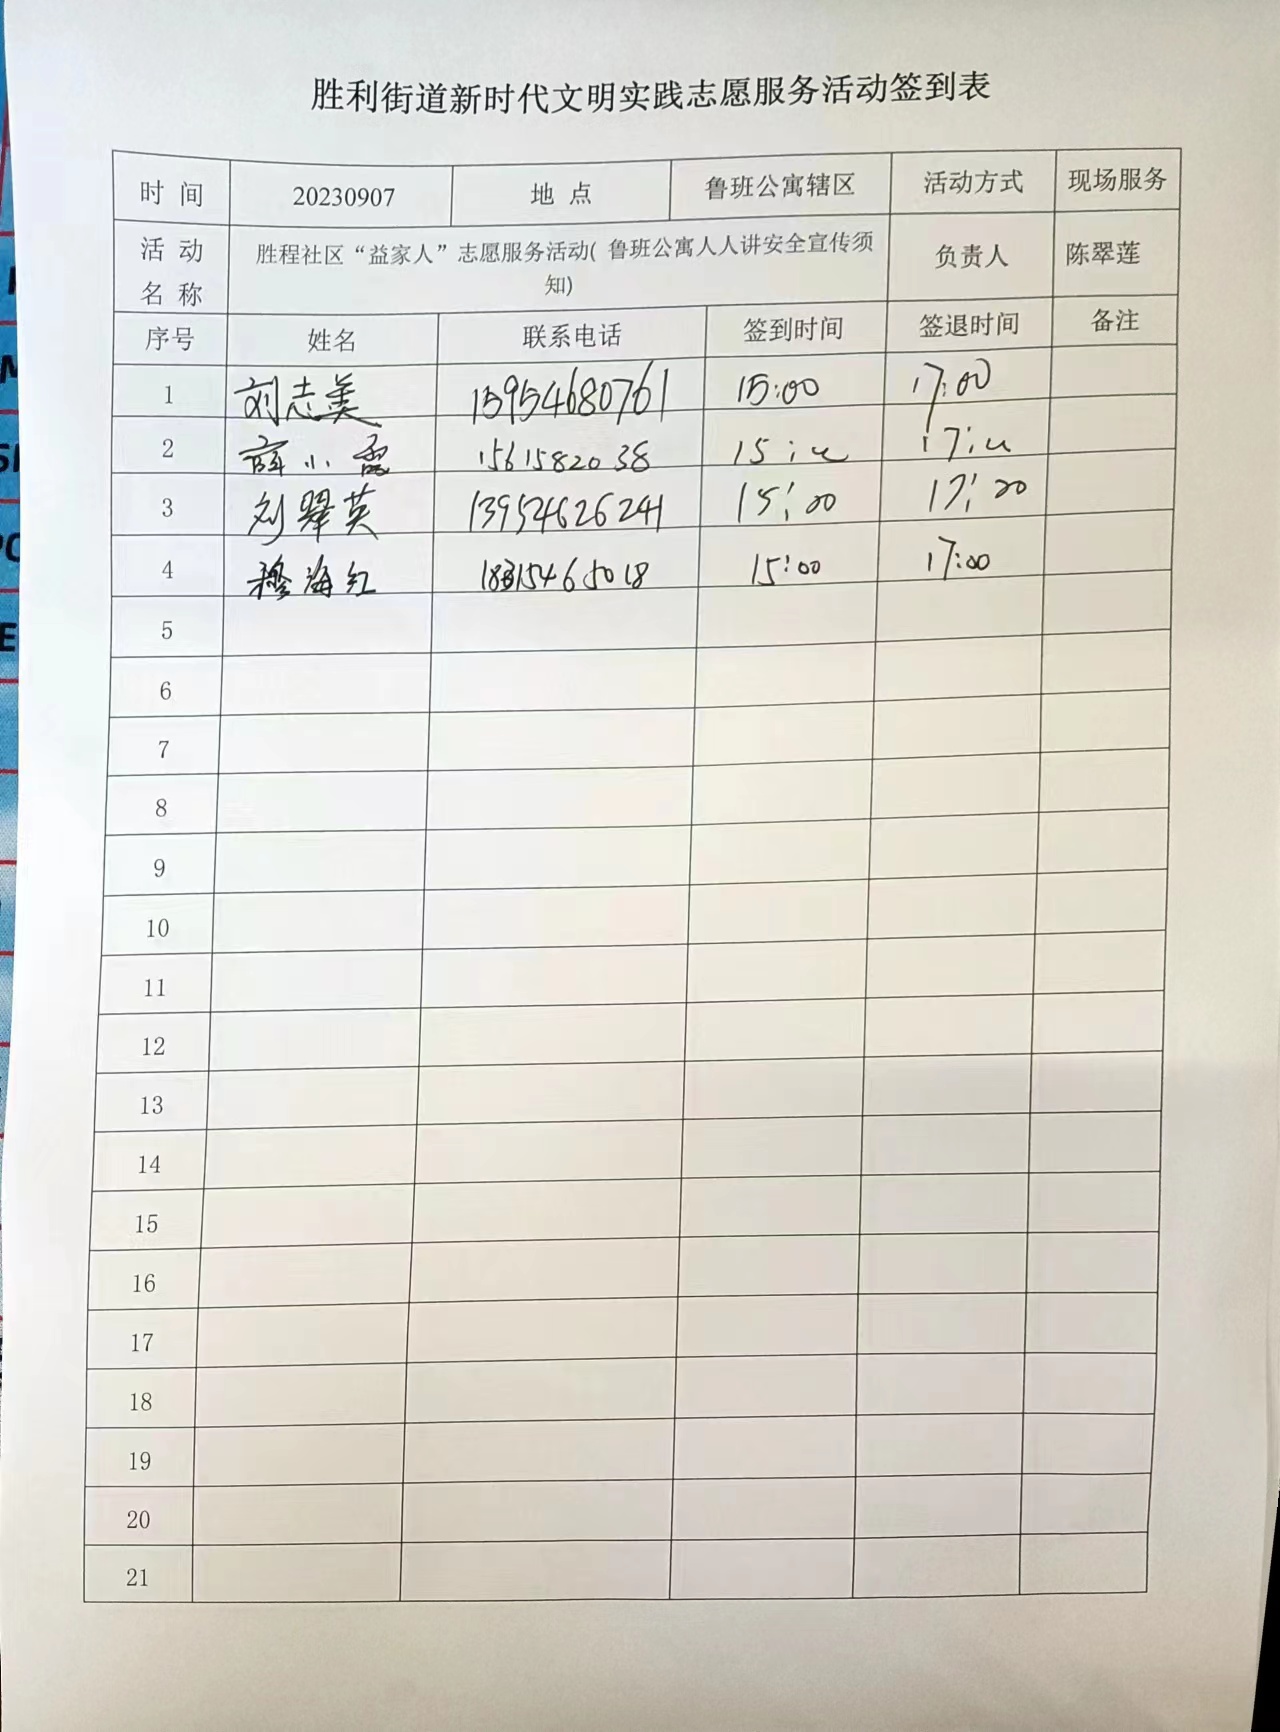 胜利街道新时代文明实践志愿服务活动签到表
时 间 20230907 地 点 鲁班公寓辖区 活动方式 现场服务
活 动 名 称 胜程社区“益家人”志愿服务活动( 鲁班公寓人人讲安全宣传须知) 负责人 陈翠莲
序号 姓名 联系电话 签到时间 签退时间 备注
1 刘志美 15954680761 15:00 17:00
2 薛小霞 1561582038 15:00 17:00
3 刘翠英 13954626241 15:00 17:00
4 穆海红 18315465018 15:00 17:00
5
6
7
8
9
10
11
12
13
14
15
16
17
18
19
20
21